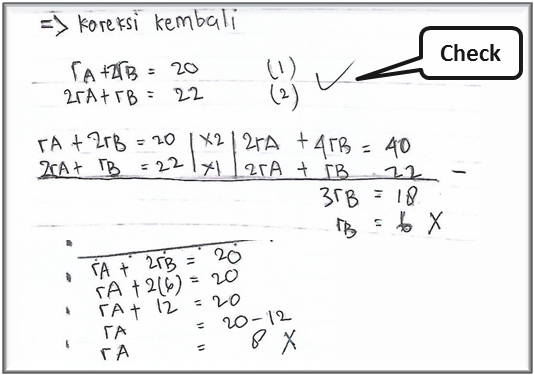 => koreksi kembali
Check
rA + 2rB = 20 (1) ✓
2rA + rB = 22 (2)
rA + 2rB = 20 | x2 | 2rA + 4rB = 40
2rA + rB = 22 | x1 | 2rA + rB 22 −
3rB = 18
rB = 6 X
rA + 2rB = 20
rA + 2(6) = 20
rA + 12 = 20
rA = 20 - 12
rA = 8 X